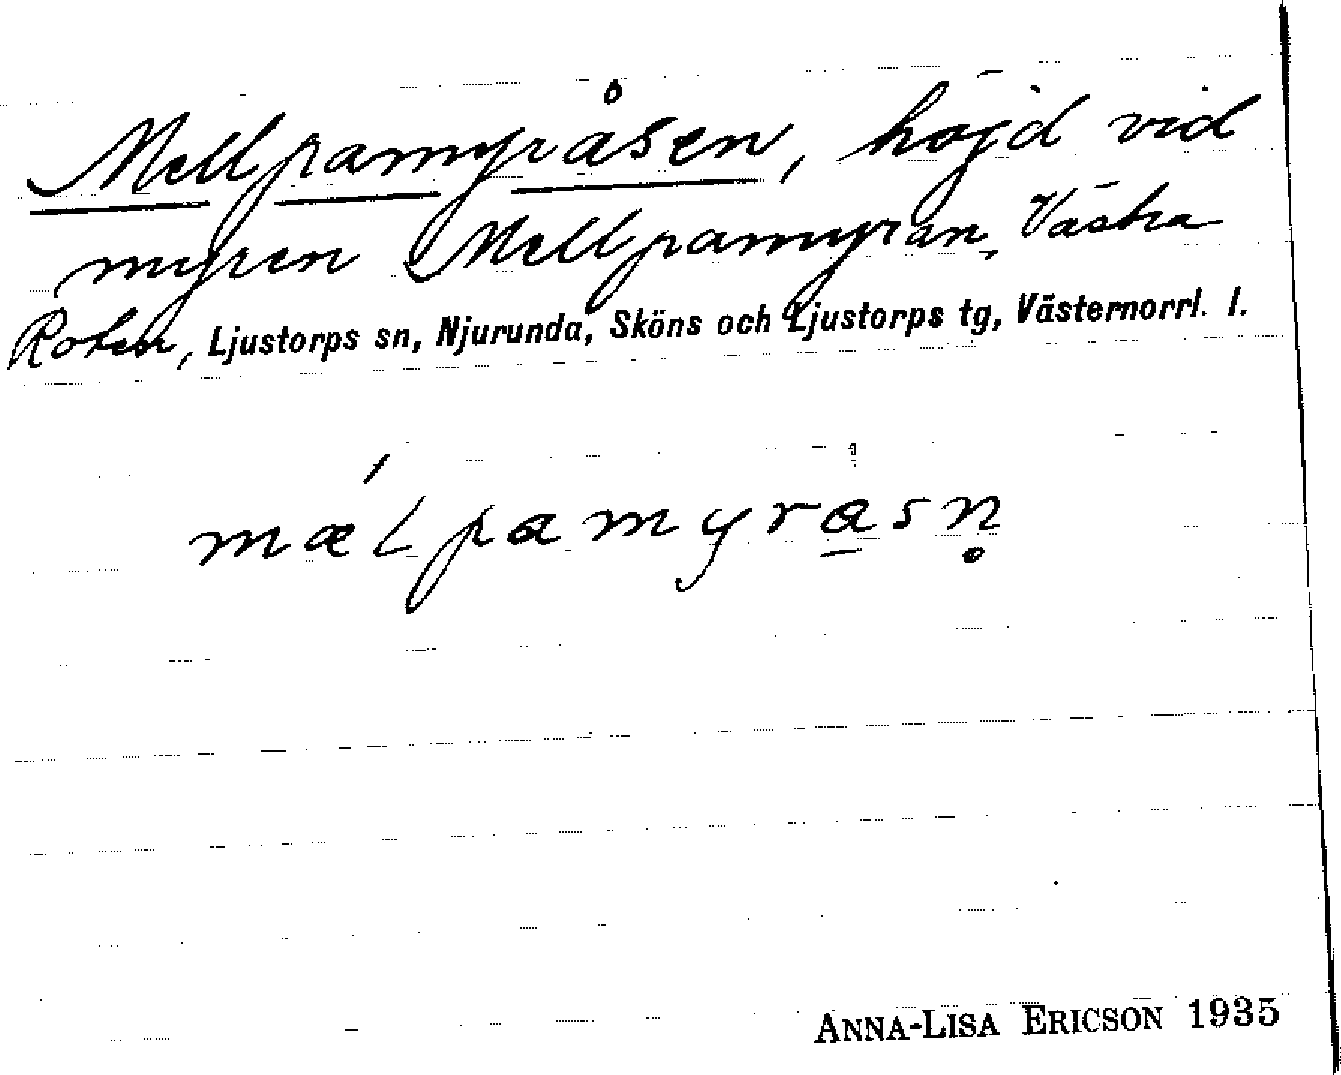 Mellpamyråsen, höjd vid
myren Mellpamyran, Västra
Roten, Ljustorps sn, Njurunda, Sköns och Ljustorps tg, Västernorrl. l.
mælpamyråsn̥
ANNA-LISA ERICSON 1935